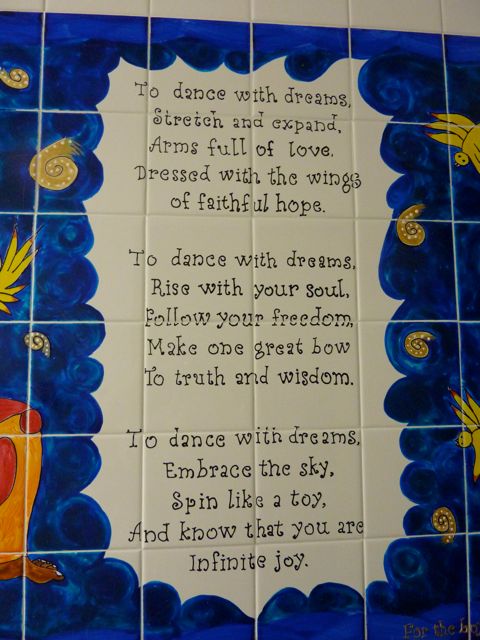 To dance with dreams,
Stretch and expand,
Arms full of love.
Dressed with the wings
of faithful hope.
To dance with dreams,
Rise with your soul,
Follow your freedom,
Make one great bow
To truth and wisdom.
To dance with dreams,
Embrace the sky,
Spin like a toy,
And know that you are
Infinite joy.
For the